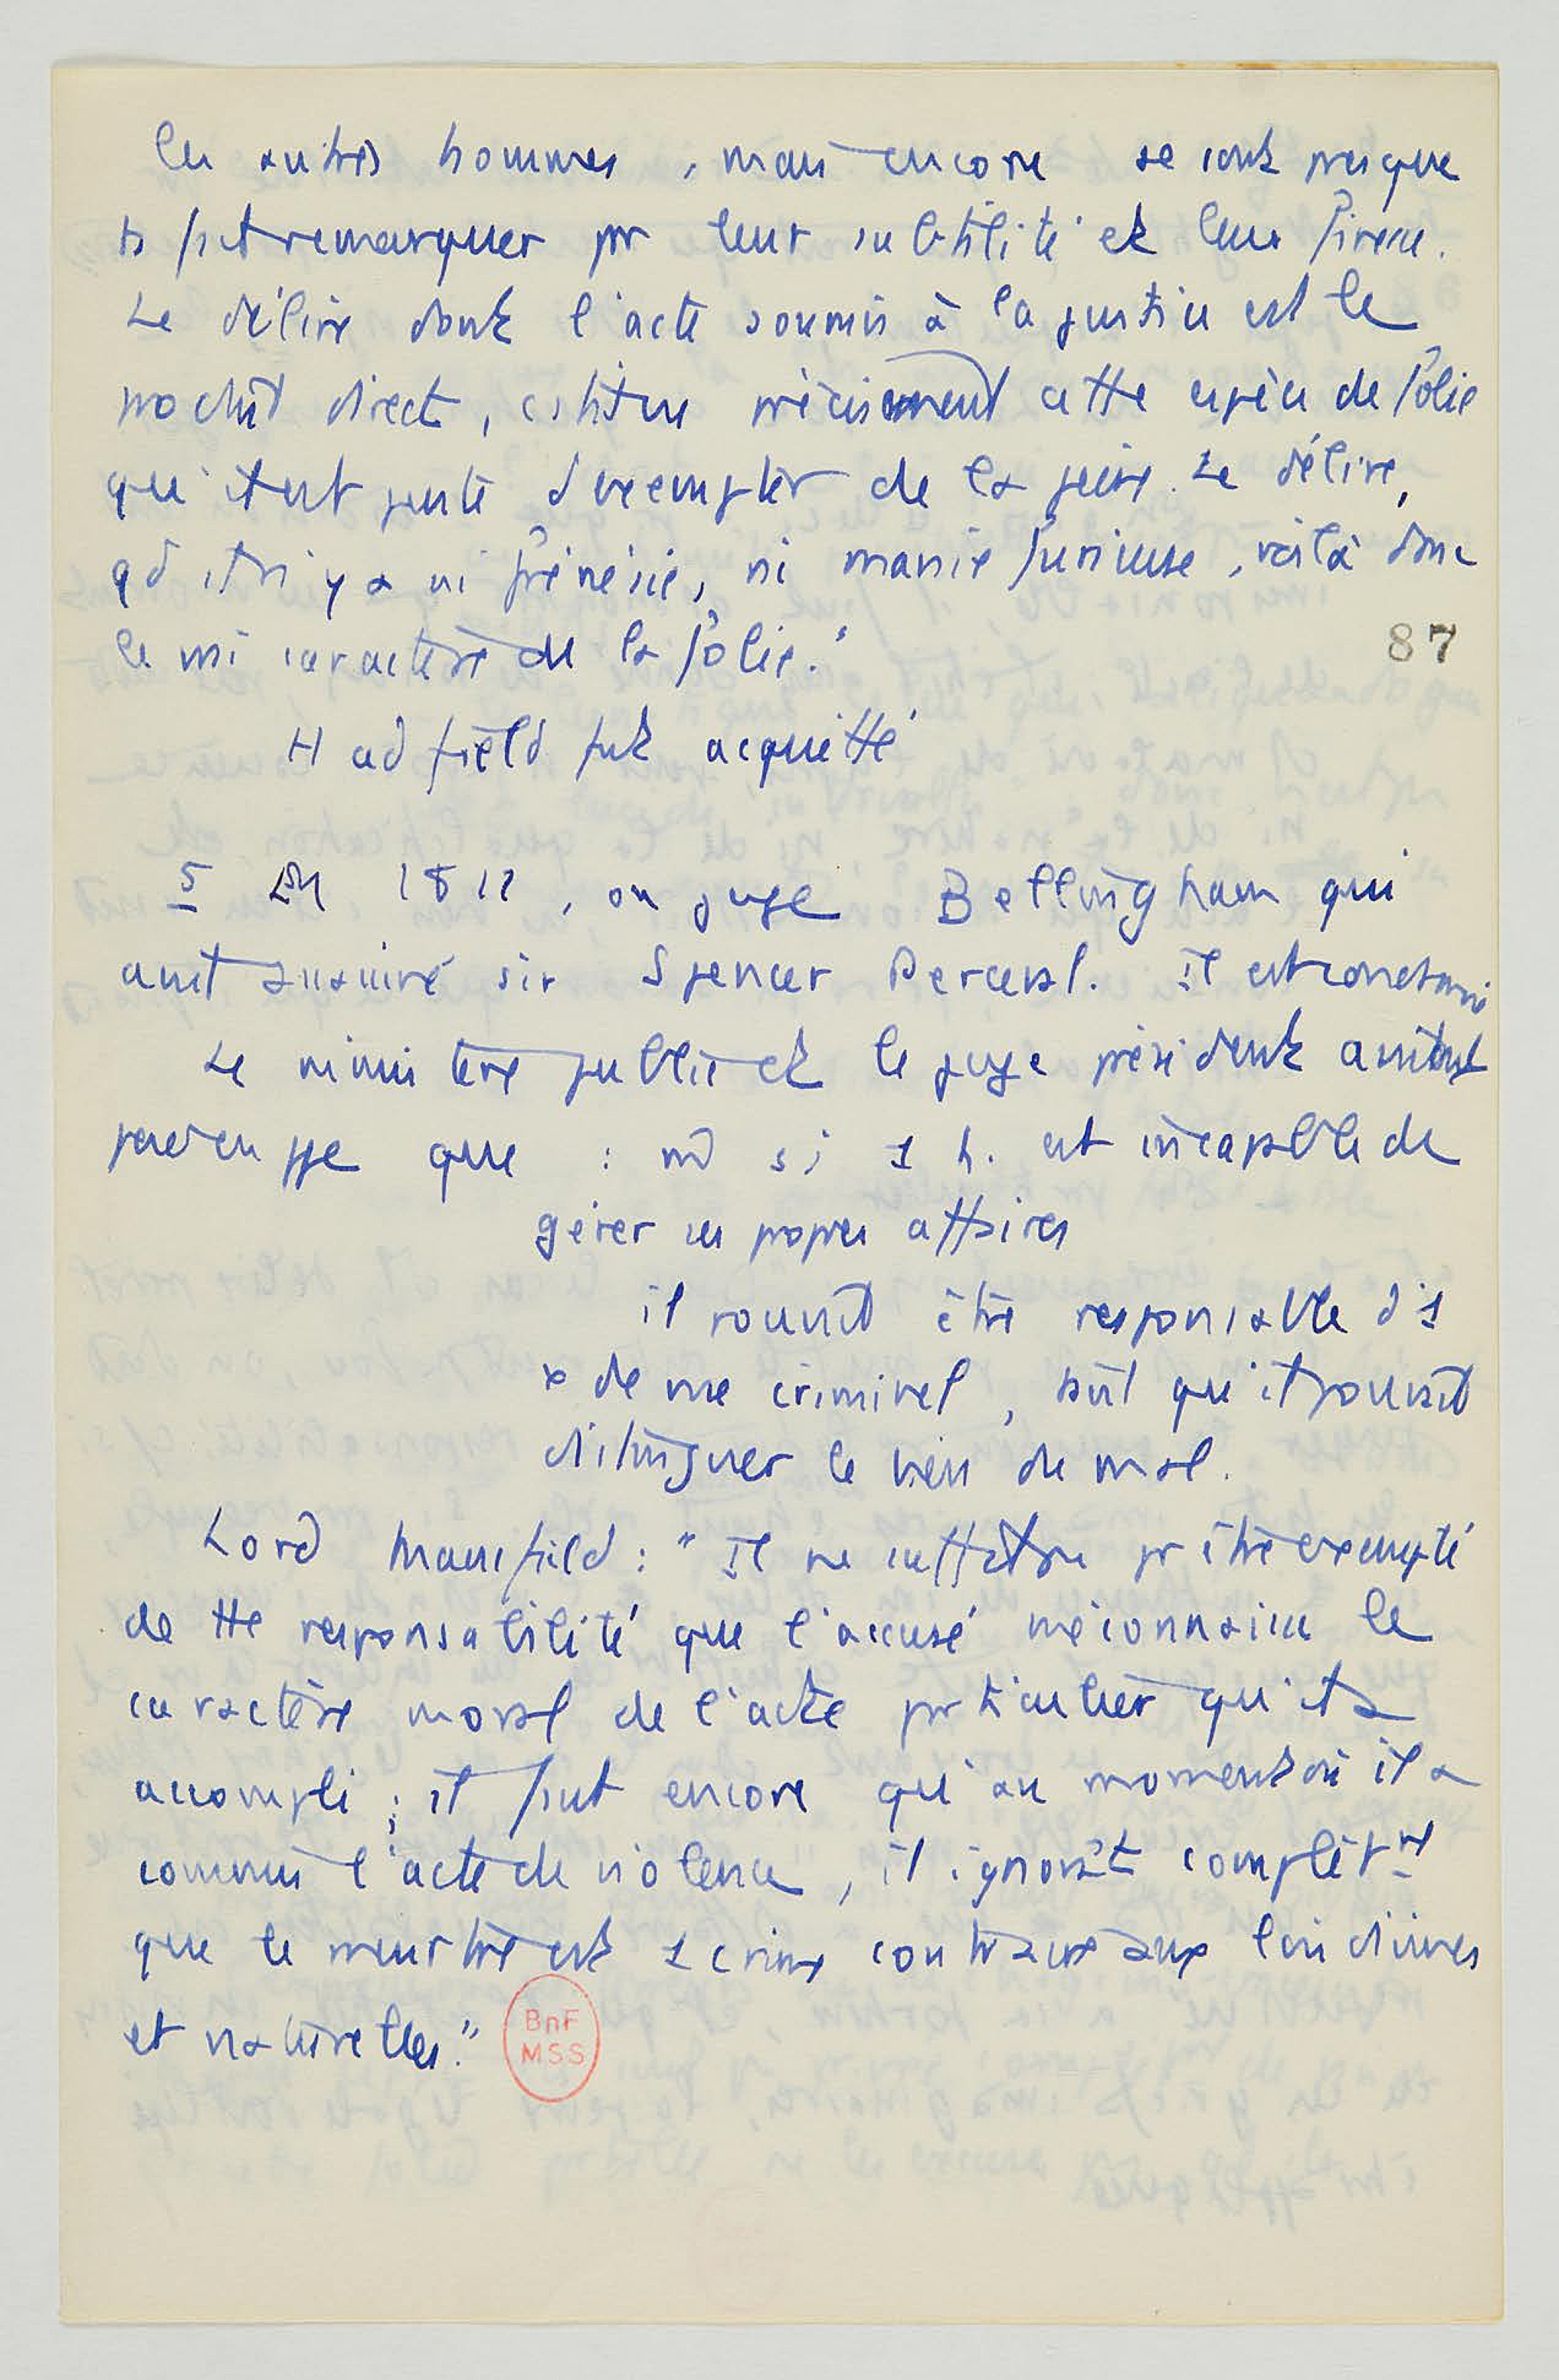 les autres hommes, mais encore se sont presque
ts fait remarquer pr leur subtilité et leur finesse.
Le délire dont l'acte soumis à la justice est le
produit direct, cstitue précisément cette espèce de folie
qu'il est juste d'exempter de la peine. Le délire,
qd il n'y a ni frénésie, ni manie furieuse, voilà donc
le vrai caractère de la folie."
87
Hadfield fut acquitté
5 En 1812, on juge Bellingham qui
avait assassiné sir Spencer Perceval. Il est condamné
Le ministère public et le juge président avaient
que : md si 1 h. est incapable de
gérer ses propres affaires
il pouvait être responsable d'1
x de vue criminel, sauf qu'il pouvait
distinguer le bien du mal.
Lord Mansfield : "Il ne suffit pas pr être exempté
de tte responsabilité que l'accusé méconnaisse le
caractère moral de l'acte particulier qu'il a
accompli ; il faut encore qu'au moment où il a
commis l'acte de violence, il ignorât complètmt
que le meurtre est 1 crime contraire aux lois divines
et naturelles."
BnF
MSS